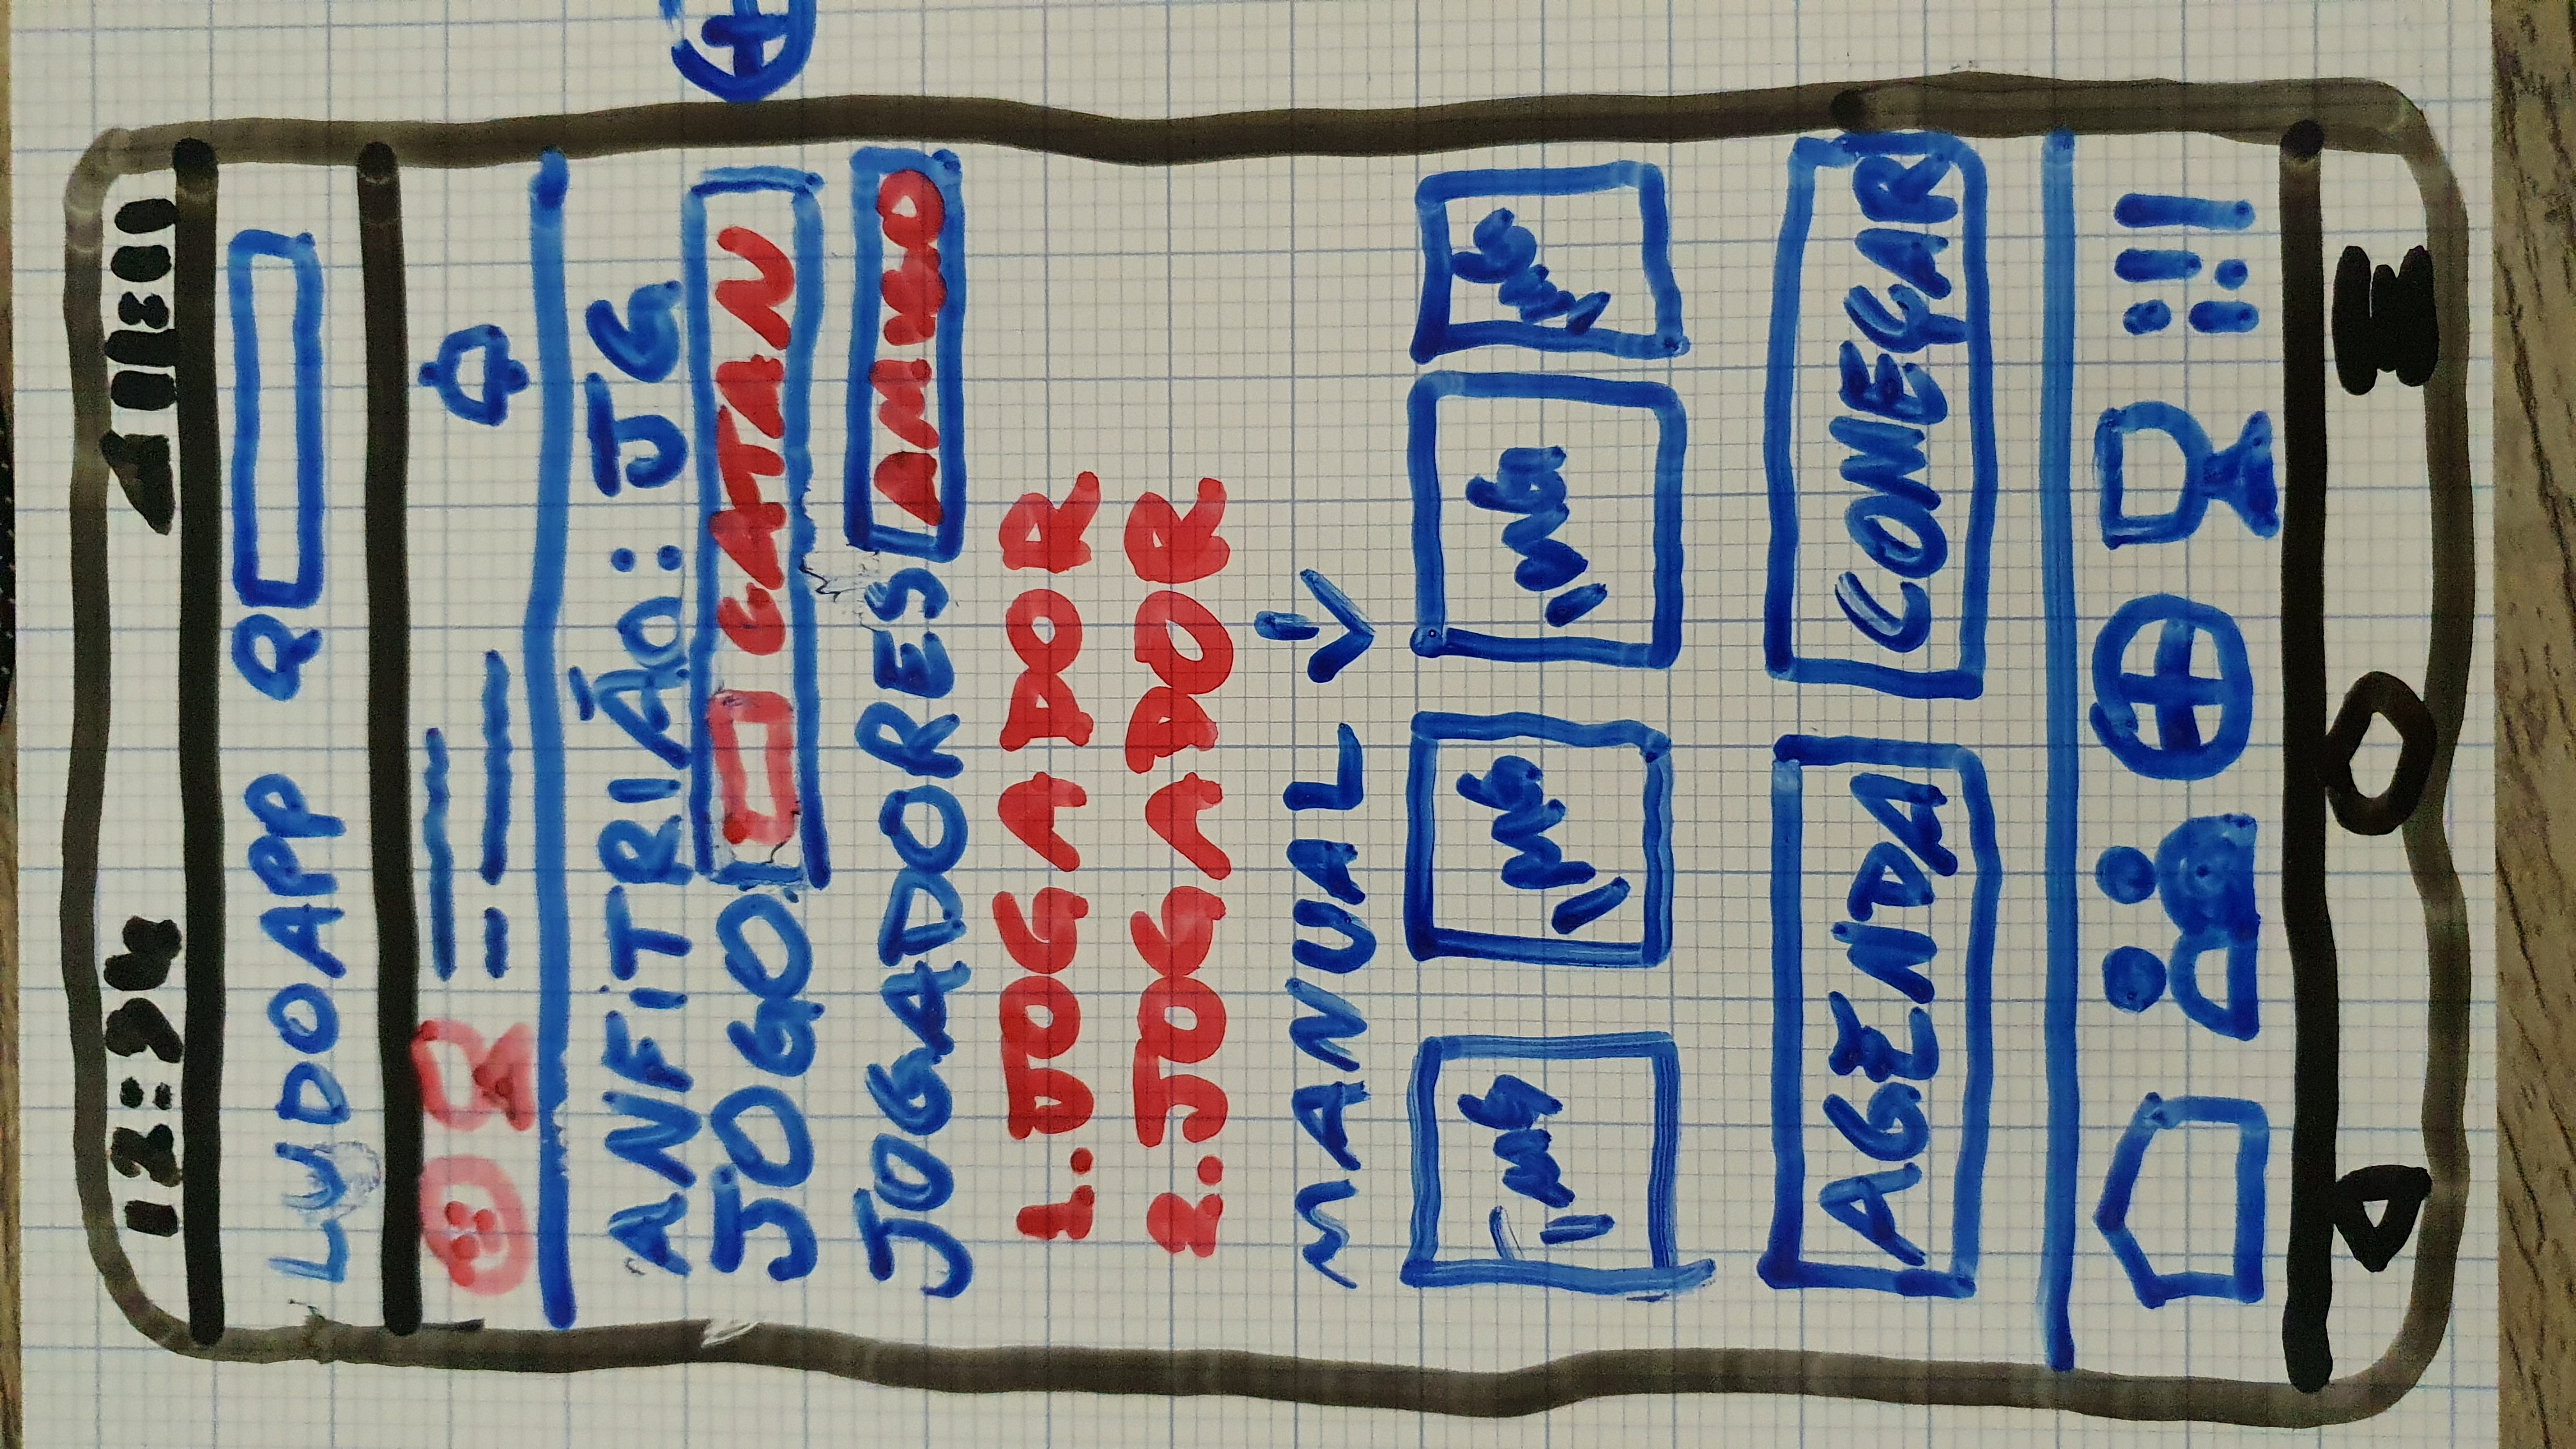 12:34
LUDOAPP
ANFITRIÃO: JG
JOGO: CATAN
JOGADORES AMIGO
1. JOGADOR
2. JOGADOR
MANUAL
IMG IMG IMG IMG
AGENDA COMEÇAR